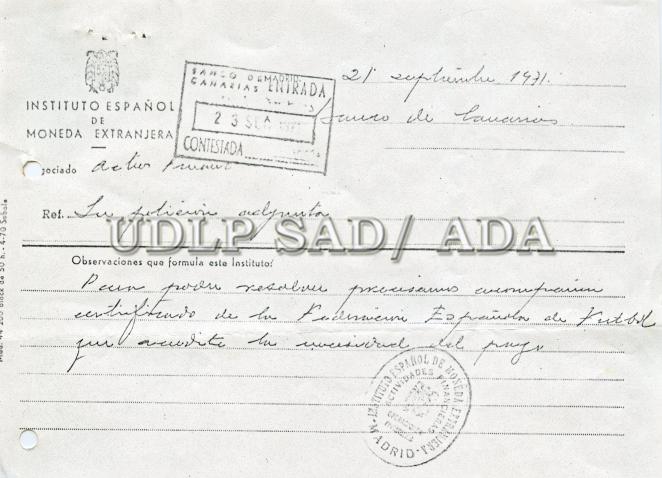 INSTITUTO ESPAÑOL
DE
MONEDA EXTRANJERA
BANCO DE MADRID
CANARIAS ENTRADA
23 SE
CONTESTADA
21 septiembre 1971.
Banco de Canarias
gociado
Ref. Su petición adjunta
UDLP SAD/ ADA
Observaciones que formula este Instituto:
Para poder resolver precisamos acompañen
certificado de la Federación Española de Futbol
que acredite la necesidad del pago
INSTITUTO ESPAÑOL DE MONEDA EXTRANJERA
ACTIVIDADES FINANCIERAS
MADRID